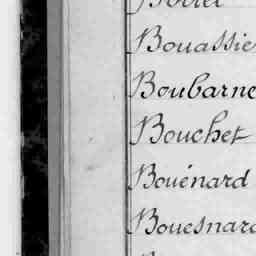 Bouassie
Boubarne
Bouchet
Bouénard
Bouesnard